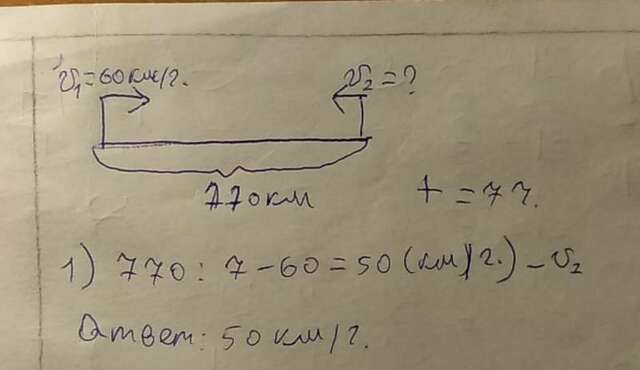 v₁=60км/г.
v₂=?
770км
t=7г.
1) 770:7-60=50(км/г.)-v₂
Ответ: 50км/г.